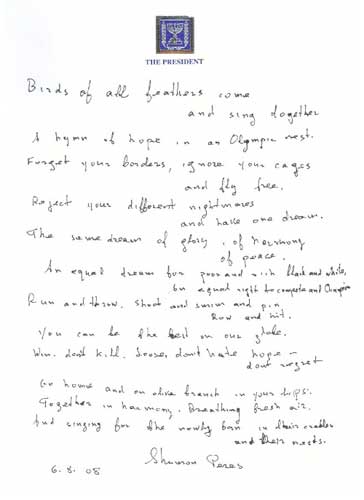 THE PRESIDENT
Birds of all feathers come
and sing together
A hymn of hope in an Olympic nest.
Forget your borders, ignore your cages
and fly free.
Reject your different nightmares
and have one dream.
The same dream of glory, of harmony
of peace.
An equal dream for poor and rich black and white,
an equal right to compete and
Run and throw. Shoot and swim and
Row and hit.
You can be the best on our globe.
Win. don't kill. Loose, don't hate hope –
dont regret
Go home and an olive branch in your
Together in harmony. Breathing fresh air.
And singing for the newly born in their cradles
and their nests.
Shimon Peres
6.8.08